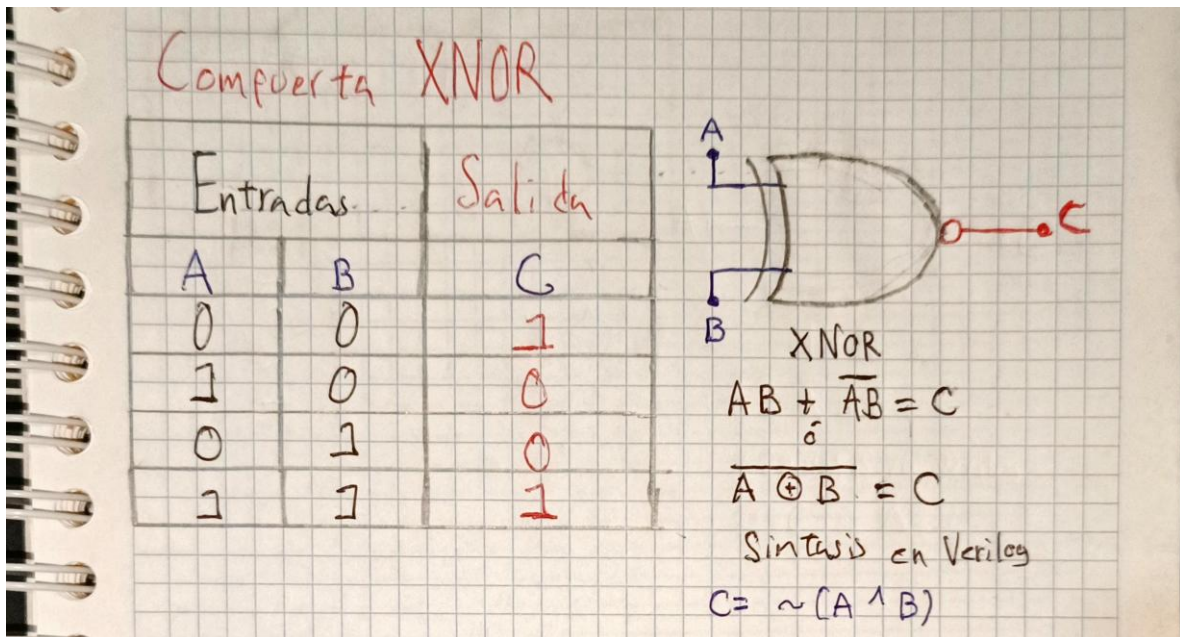 Compuerta XNOR
Entradas Salida
A B C
0 0 1
1 0 0
0 1 0
1 1 1
A
C
B
XNOR
AB + A̅B̅ = C
ó
A̅ ̅⊕̅ ̅B̅ = C
Sintasis en Verilog
C= ~(A ^ B)